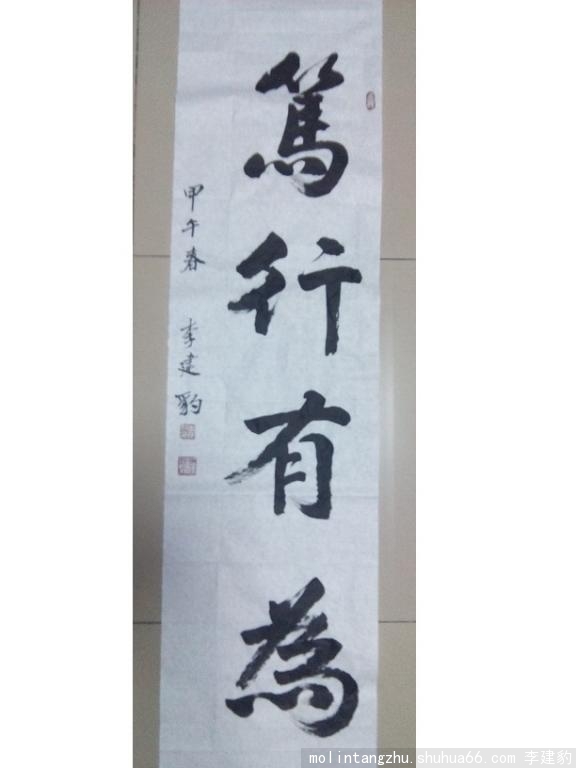 篤行有為
甲午春 李建豹
molintangzhu.shuhua66.com 李建豹